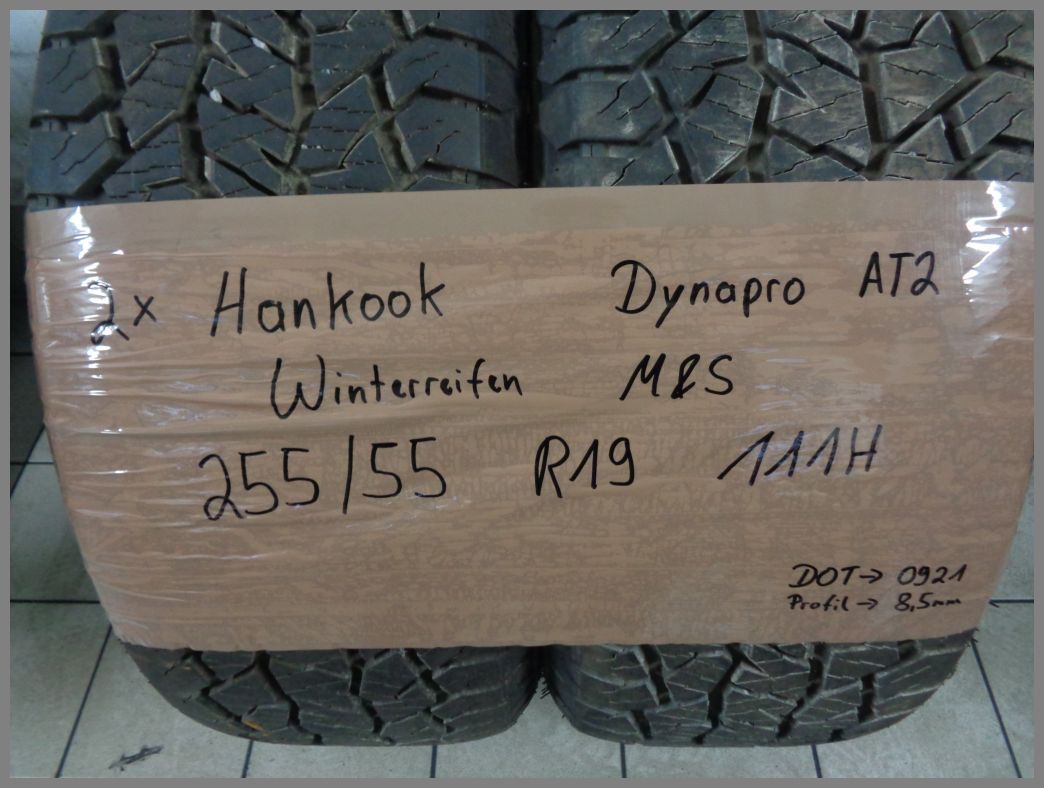 2x Hankook Dynapro AT2
Winterreifen M&S
255/55 R19 111H
DOT→ 0921
Profil→ 8,5mm